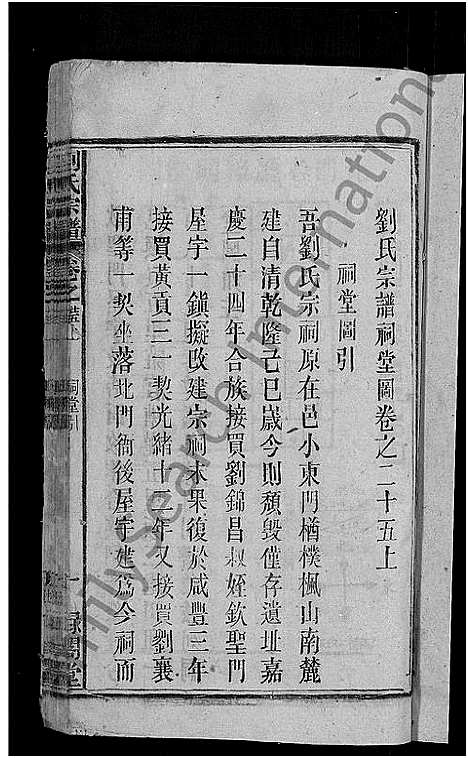 劉氏宗譜祠堂圖卷之二十五上
祠堂圖引
吾劉氏宗祠原在邑小東門楢樸楓山南麓
建自清乾隆己巳歲今則頹毀僅存遺址嘉
慶二十四年合族接買劉錦昌叔姪欽聖門
屋宇一鎭擬改建宗祠未果復於咸豐三年
接買黃貢三一契光緒十二年又接買劉襄
甫等一契坐落北門衙後屋宇建爲今祠而
劉氏宗譜
卷之
祠堂引
堂
FamilySearch International